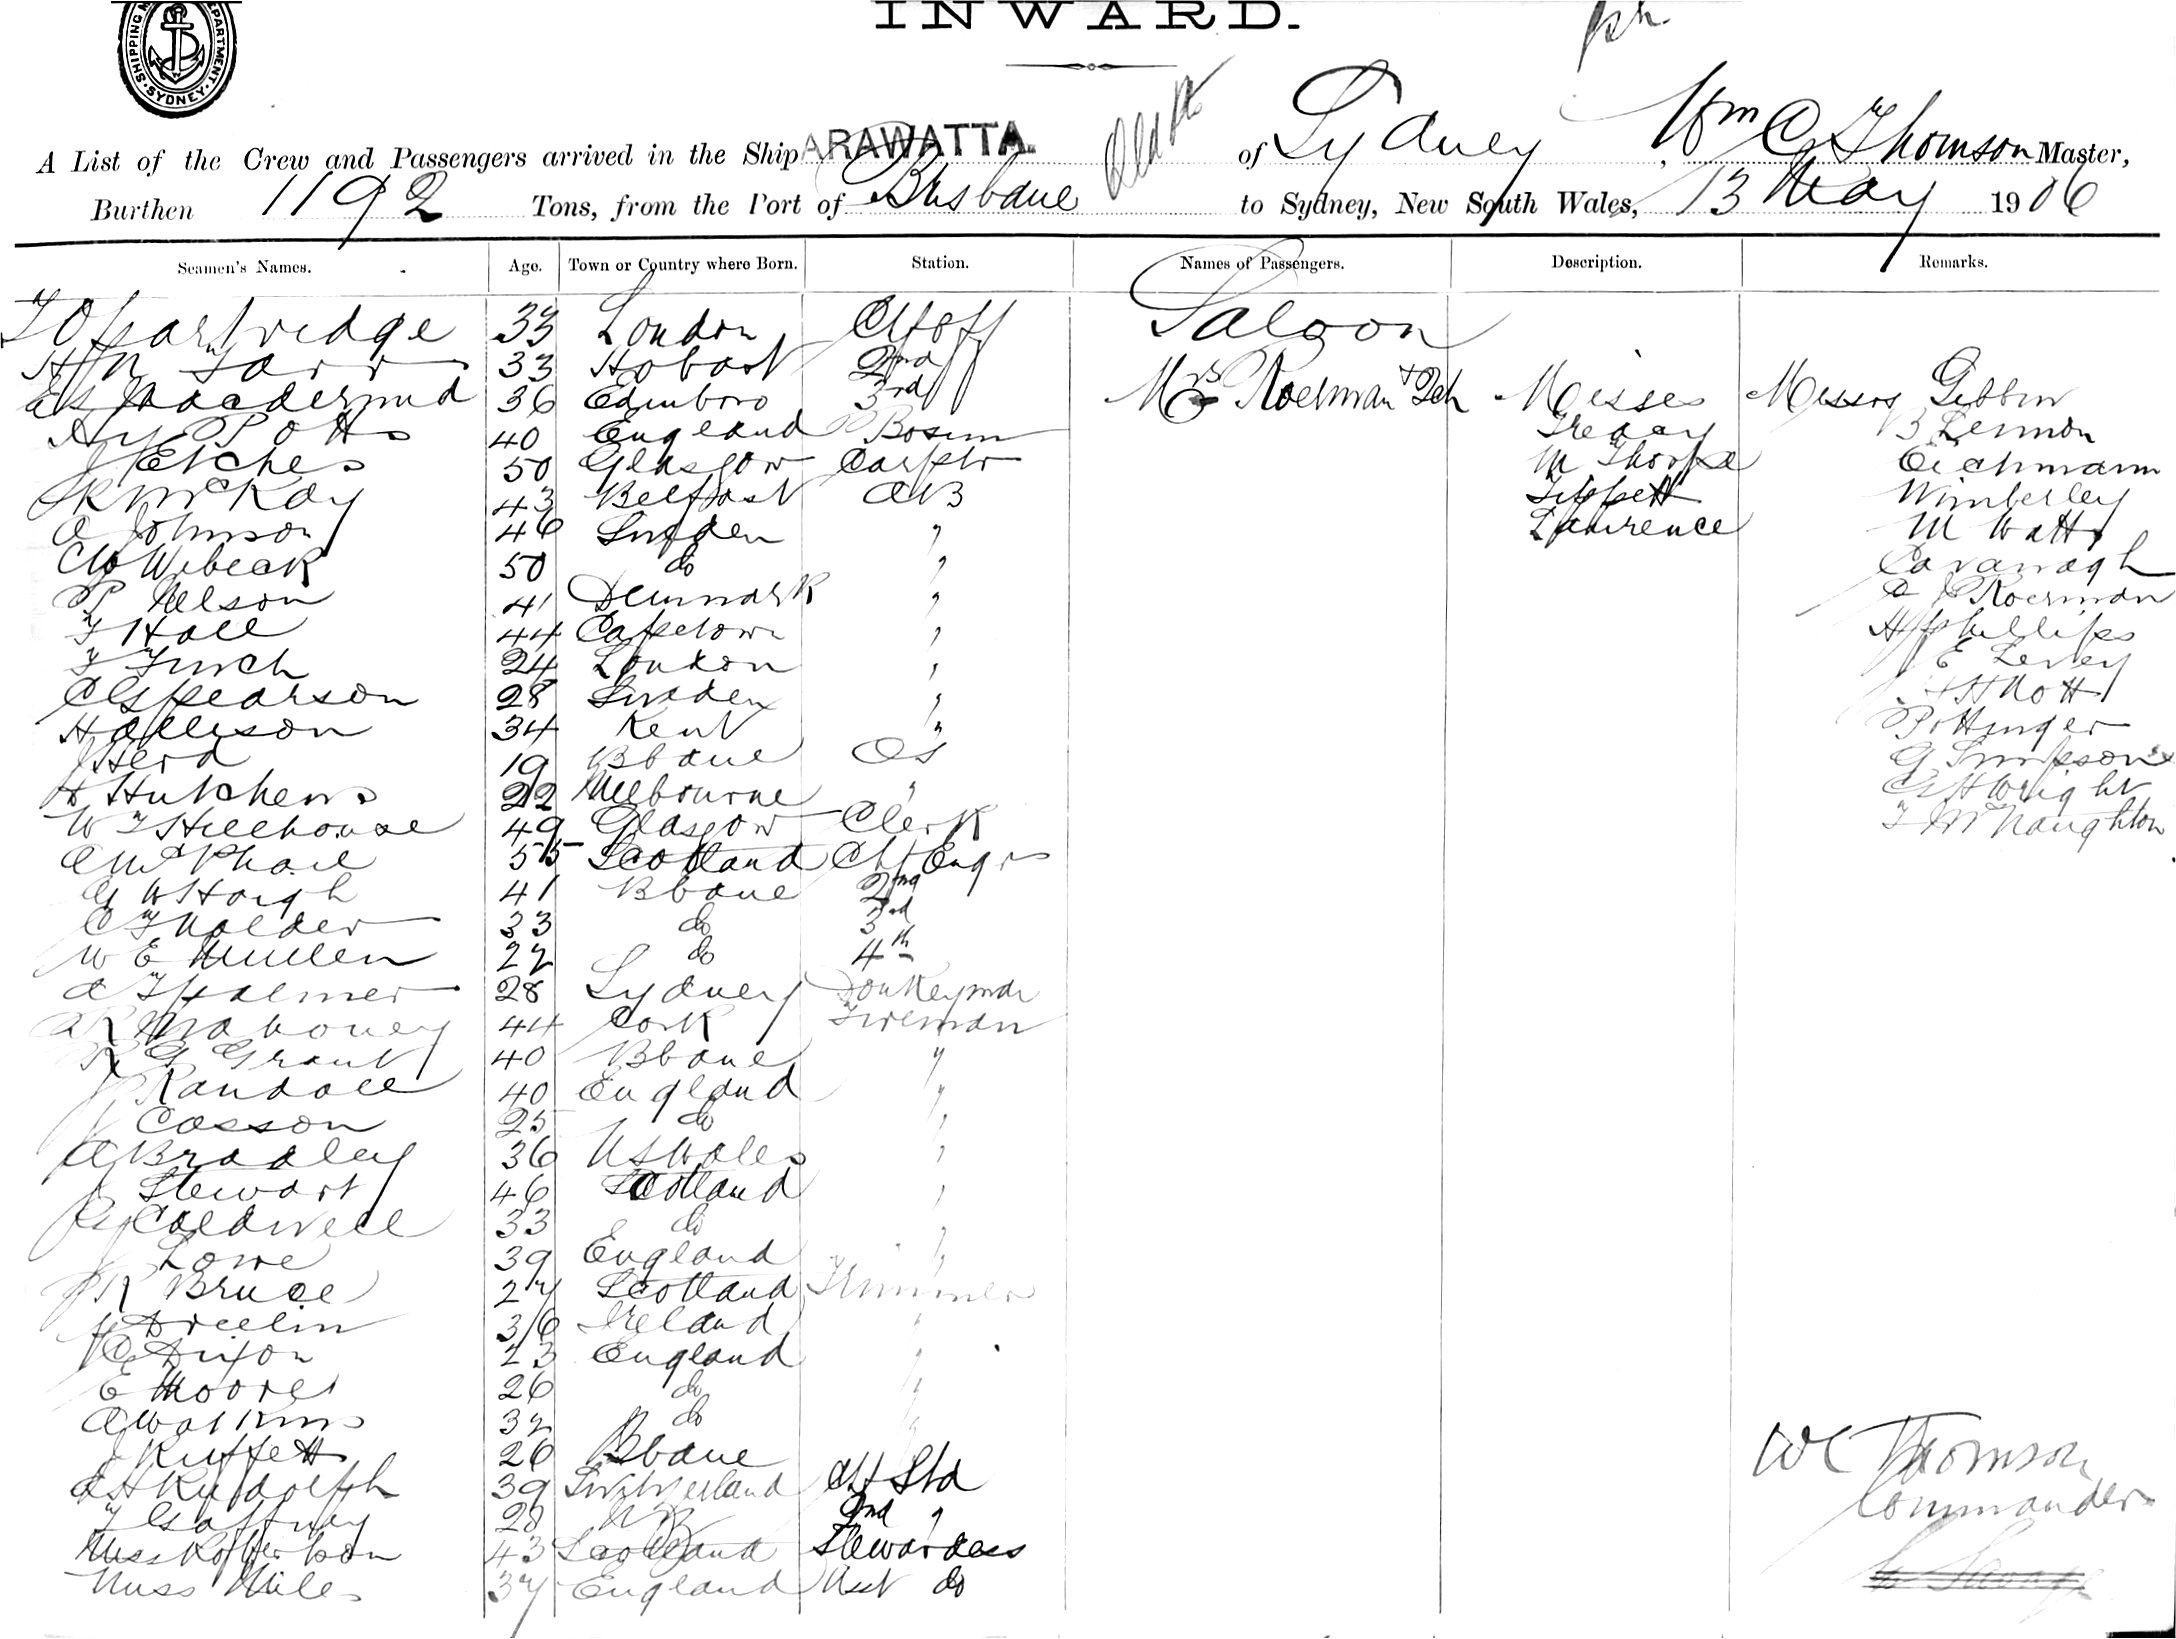 SHIPPING DEPARTMENT. SYDNEY.
INWARD.
A List of the Crew and Passengers arrived in the Ship ARAWATTA of Sydney, Wm C Thomson Master,
Burthen 1192 Tons, from the Port of Brisbane to Sydney, New South Wales, 13 May 1906
Seamen's Names. Age. Town or Country where Born. Station. Names of Passengers. Description. Remarks.
Saloon
33 London
33 Hobart 2nd
36 Edinboro 3rd Mrs Roerman Misses Messrs Gibbin
Potts 40 England Bosun Treacy B Lennon
J Etches 50 Glasgow Carptr M Thorpe Eichmann
R McKay 43 Belfast AB Tippett Wimberley
A Johnson 46 Sweden " Lawrence M Watts
Wibeck 50 do " Cavanagh
P Nelson 41 Denmark " Roerman
T Hall 44 Capetown " H Phillips
T Finch 24 London " E Levey
C G Pearson 28 Sweden " Nott
H Allison 34 Kent " Pottinger
J Herd 19 Bbane OS G Simpson
H Hutchens 22 Melbourne " Wright
W T Hillhouse 49 Glasgow Clerk T McNaughton
A McPhail 55 Scotland Chf Engr
G W Haigh 41 Bbane 2nd
33 do 3rd
W E Mullen 22 do 4th
A T Palmer 28 Sydney Donkeyman
Mahoney 44 Cork Fireman
R G Grant 40 Bbane "
J Randall 40 England "
J Casson 25 do "
A Bradley 36 NSWales "
J Stewart 46 Scotland "
Caldwell 33 do "
J Lowe 39 England "
J R Bruce 27 Scotland Trimmer
Dreelin 36 Ireland "
Dixon 23 England "
E Moores 26 do "
A Watkins 32 do "
J Ruffett 26 Bbane
A H Rudolph 39 Switzerland Chf Std
T Gaffney 28 2nd "
Miss Robertson 43 Scotland Stewardess
Miss Miles 37 England Asst do
W C Thomson
Commander